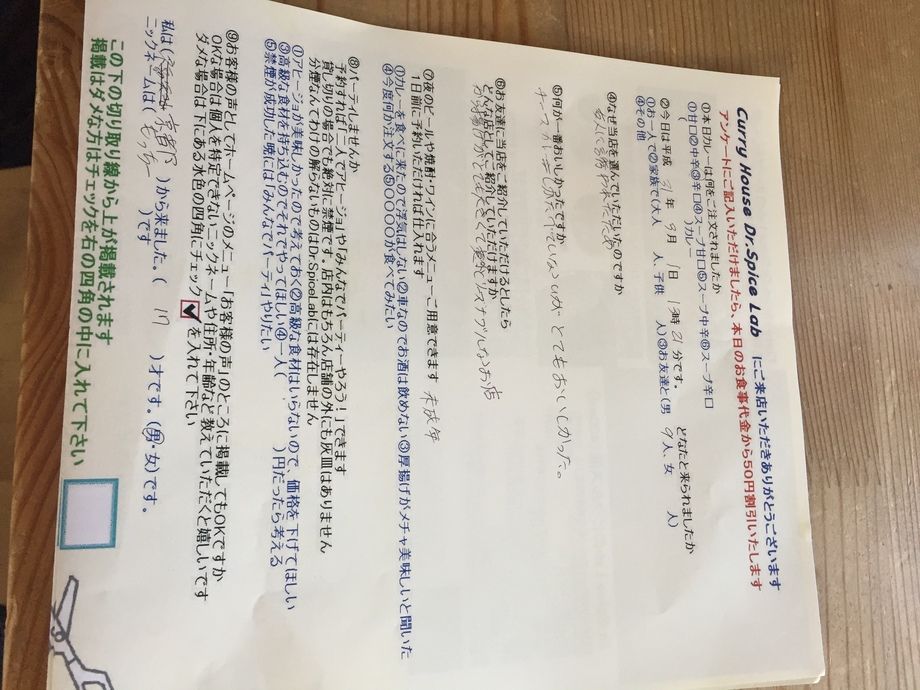 Curry House Dr.Spice Lab にご来店いただきありがとうございます
アンケートにご記入いただけましたら、本日のお食事代金から50円割引いたします
①本日カレーは何をご注文されましたか
①甘口②中辛③辛口④スープ甘口⑤スープ中辛⑥スープ辛口
( )カレー
②今日は平成 31年 9月 1日 13時21分です。 どなたと来られましたか
①お一人で②ご家族で(大人 人、子供 人)③お友達と(男 9人、女 人)
④その他
④なぜ当店を選んでいただいたのですか
⑤何が一番おいしかったですか
とてもおいしかった。
⑥お友達に当店をご紹介していただけるとしたら
どんな店としてご紹介していただけますか
リーズナブルなお店
⑦夜のビールや焼酎・ワインに合うメニューご用意できます 未成年
1日前に予約いただければ仕入れます
①カレーを食べに来たので浮気はしない②車なのでお酒は飲めない③厚揚げがメチャ美味しいと聞いた
④今度何か注文する⑤〇〇〇〇が食べてみたい
⑧パーティしませんか
予約すれば「二人でアヒージョ」や「みんなでパーティーやろう!」できます
貸し切りの場合でも絶対に禁煙です。店内はもちろん店舗の外にも灰皿はありません
分煙なんてわけの解らないものはDr.SpiceLabには存在しません
①アヒージョが美味しかったので考えておく②高級な食材はいらないので、価格を下げてほしい
③高級な食材を持ち込むのでそれでやってほしい④一人( )円だったら考える
⑤禁煙が成功した暁には「みんなでパーティ」やりたい
⑨お客様の声としてホームページのメニュー「お客様の声」のところに掲載してもOKですか
OKな場合は個人を特定できないニックネームや住所・年齢など教えていただくと嬉しいです
ダメな場合は下にある水色の四角にチェック☑を入れて下さい
私は( 京都 )から来ました。( 17 )才です。(男・女)です。
ニックネームは( もっちー )です
この下の切り取り線から上が掲載されます
掲載はダメな方はチェックを右の四角の中に入れて下さい